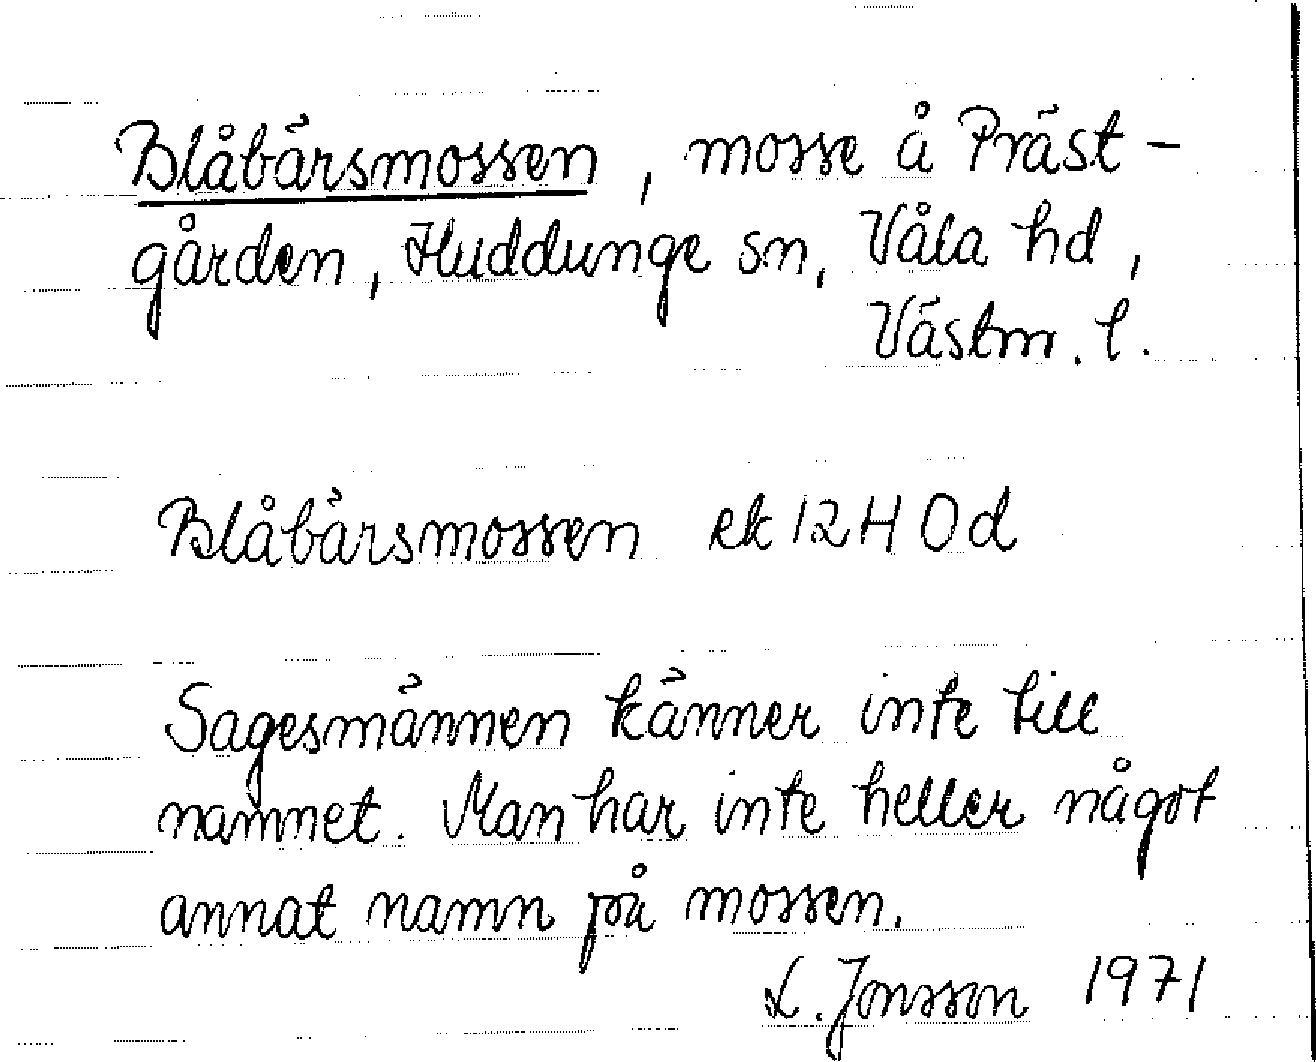 Blåbärsmossen, mosse å Präst-
gården, Huddunge sn, Våla hd,
Västm. l.
Blåbärsmossen ek 12H 0d
Sagesmännen känner inte till
namnet. Man har inte heller något
annat namn på mossen.
L. Jonsson 1971